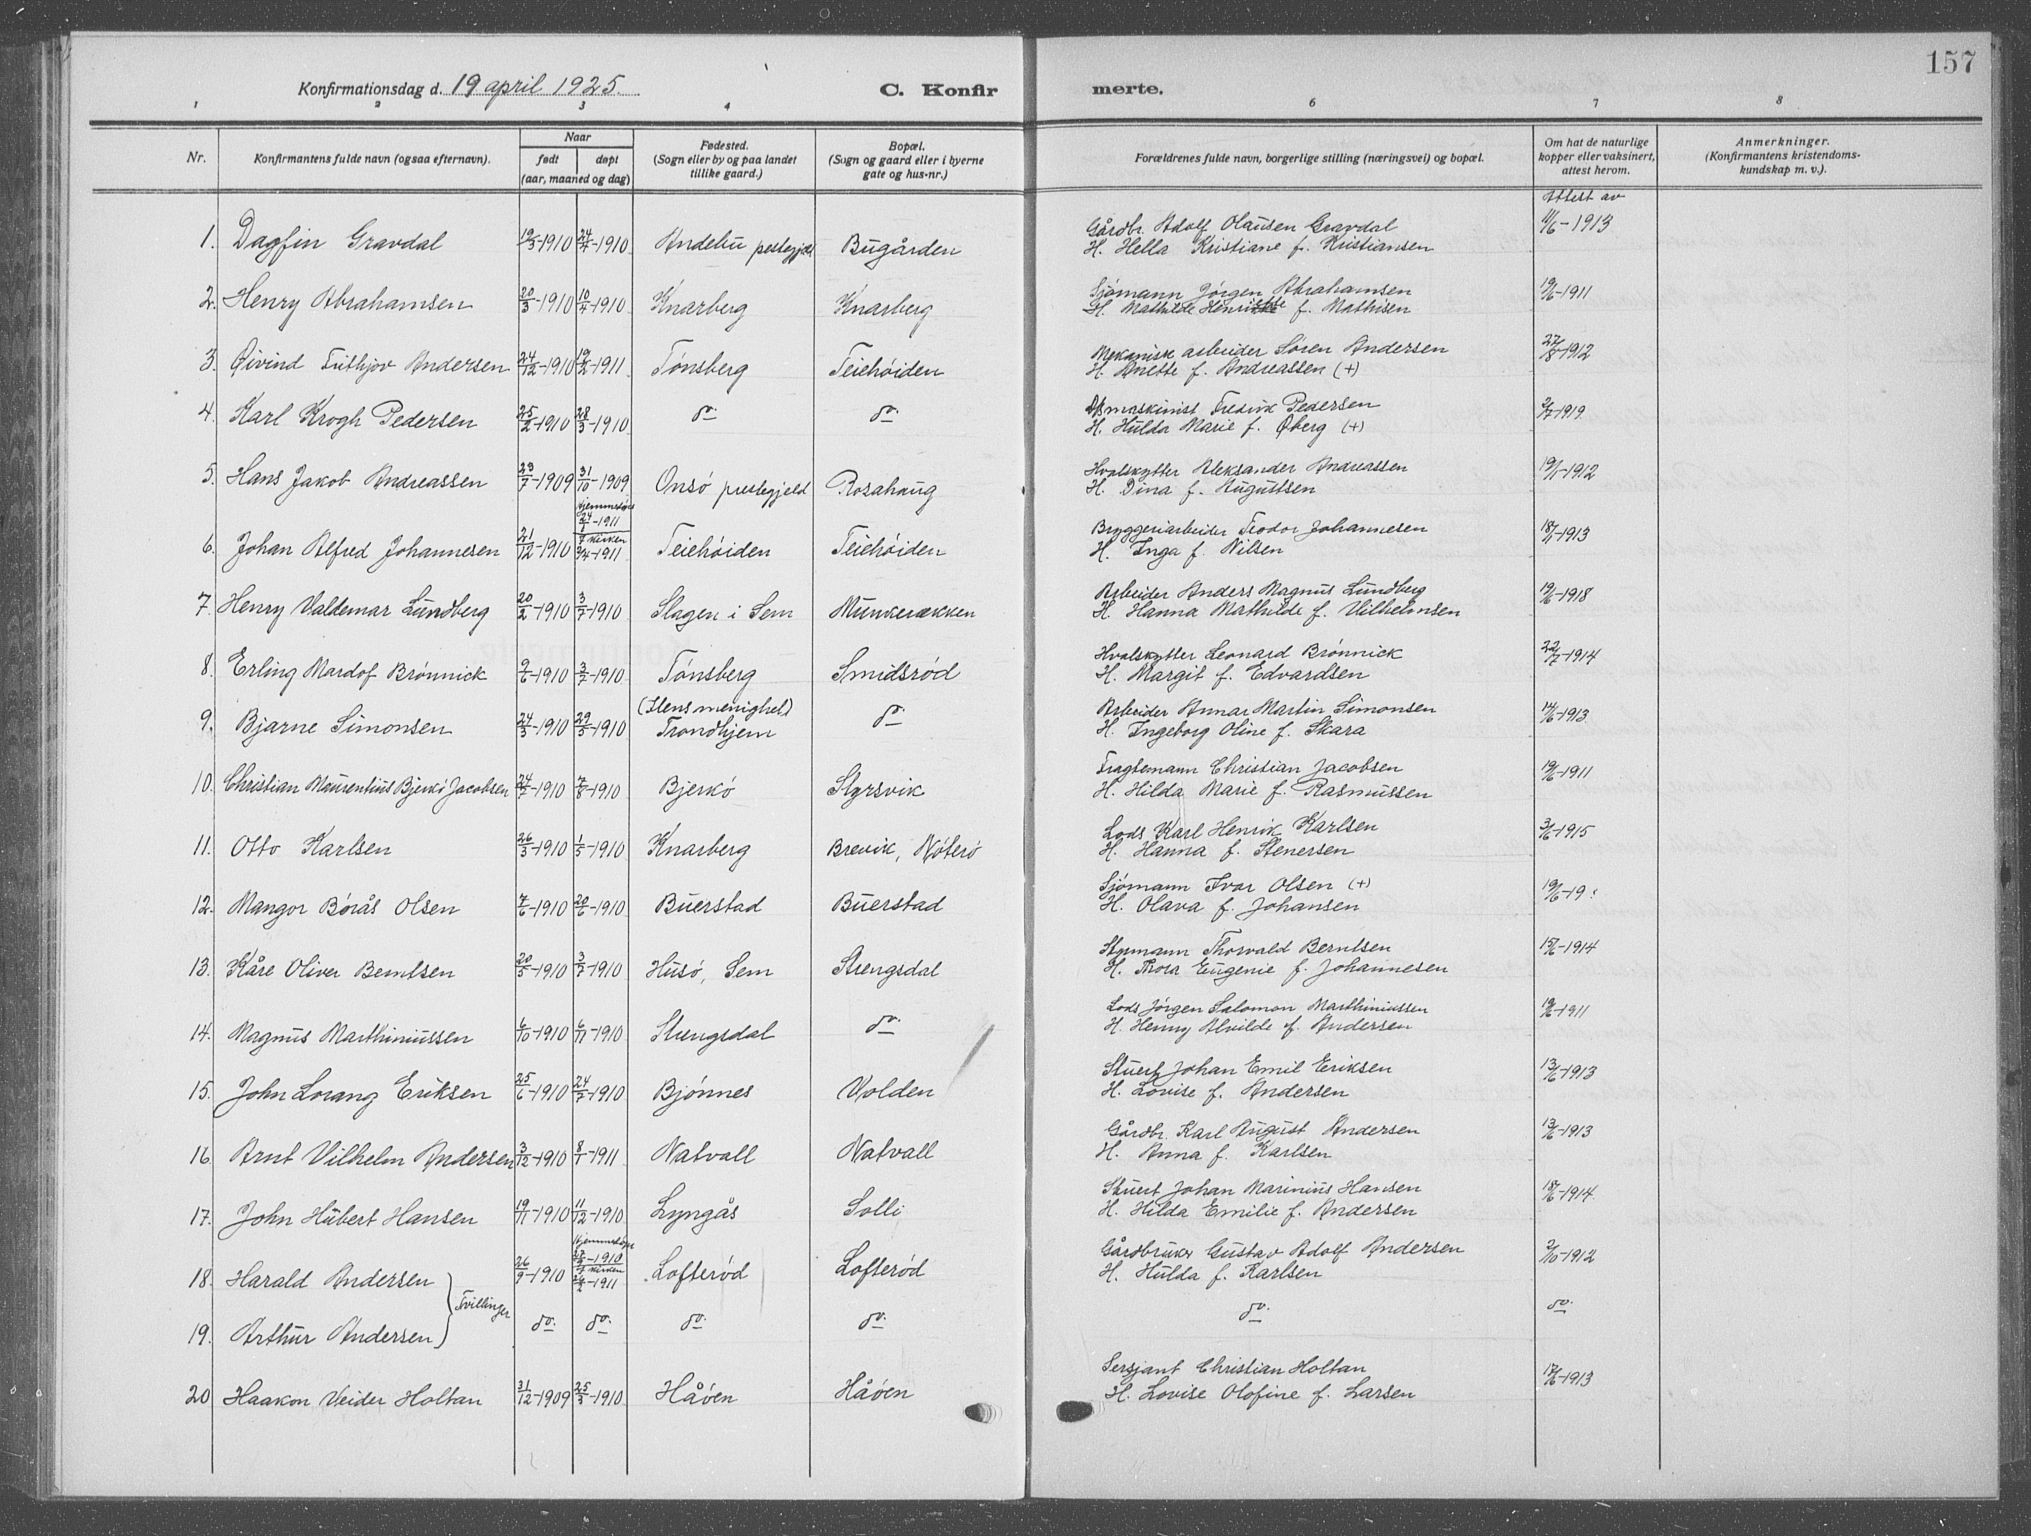 157
Konfirmationsdag d. 19 april 1925.
C. Konfirmerte.
1 2 3 4 6 7 8
Nr. Konfirmantens fulde navn (ogsaa efternavn). Naar født døpt (aar, maaned og dag) Fødested. (Sogn eller by og paa landet tillike gaard.) Bopæl. (Sogn og gaard eller i byerne gate og hus-nr.) Forældrenes fulde navn, borgerlige stilling (næringsvei) og bopæl. Om hat de naturlige kopper eller vaksinert, attest herom. Anmerkninger. (Konfirmantens kristendoms-kundskap m. v.).
Attest av
1. Dagfin Gravdal 19/3-1910 24/4-1910 Andebu prestegjeld Bugården Gårdbr. Adolf Olausen Gravdal 11/6-1913
H. Hella Kristiane f. Kristiansen
2. Henry Abrahamsen 20/3-1910 10/4-1910 Knarberg Knarberg Sjømann Jørgen Abrahamsen 19/6-1911
H. Mathilde f. Mathisen
3. Øivind Frithjov Andersen 24/12-1910 19/2-1911 Tønsberg Teiehøiden Mekanisk arbeider Søren Andersen 27/8-1912
H. Anette f. Andreassen (+)
4. Karl Krogh Pedersen 25/2-1910 28/3-1910 do. do. maskinist Fredrik Pedersen 2/7-1919
H. Hulda Marie f. Øberg (+)
5. Hans Jakob Andreassen 23/7-1909 31/10-1909 Onsø prestegjeld Rosahaug Hvalskytter Aleksander Andreassen 19/1-1912
H. Dina f. Augustsen
6. Johan Alfred Johannesen 21/12-1910 Hjemmedøpt -1911 I kirken -1911 Teiehøiden Teiehøiden Bryggeriarbeider Teodor Johannesen 18/7-1913
H. Inga f. Nilsen
7. Henry Valdemar Lundberg 20/2-1910 3/7-1910 Slagen i Sem Munkerækken Arbeider Anders Magnus Lundberg 19/6-1918
H. Hanna Mathilde f. Vilhelmsen
8. Erling Mardof Brønnick 9/6-1910 3/7-1910 Tønsberg Smidsrød Hvalskytter Leonard Brønnick 22/7-1914
H. Margit f. Edvardsen
9. Bjarne Simonsen 24/3-1910 29/5-1910 (Ilens menighet) Trondhjem do. Arbeider Annar Martin Simonsen 14/6-1913
H. Ingeborg Oline f. Skara
10. Christian Maurentius Bjerkø Jacobsen 24/7-1910 7/8-1910 Bjerkø Styrsvik Fragtemann Christian Jacobsen 19/6-1911
H. Hilda Marie f. Rasmussen
11. Otto Karlsen 26/3-1910 1/5-1910 Knarberg Brevik, Nøterø Lods Karl Henrik Karlsen 3/6-1915
H. Hanna f. Stenersen
12. Mangor Børås Olsen 7/6-1910 20/6-1910 Buerstad Buerstad Sjømann Ivar Olsen (+) 19/6-19
H. Olava f. Johansen
13. Kåre Oliver Berntsen 20/5-1910 3/7-1910 Husø, Sem Strengsdal Styrmann Thorvald Berntsen 15/6-1914
H. Thora Eugenie f. Johannesen
14. Magnus Marthiniussen 6/10-1910 6/11-1910 Strengsdal do. Lods Jørgen Salomon Marthiniussen 19/6-1911
H. Henny Alvilde f. Andersen
15. John Lorang Eriksen 25/6-1910 24/7-1910 Bjønnes Volden Stuert Johan Emil Eriksen 13/6-1913
H. Lovise f. Andersen
16. Arnt Vilhelm Andersen 3/12-1910 8/1-1911 Natvall Natvall Gårdbr. Karl August Andersen 13/6-1913
H. Anna f. Karlsen
17. John Hubert Hansen 19/11-1910 11/12-1910 Lyngås Solli Stuert Johan Marinius Hansen 15/6-1914
H. Hilda Emilie f. Andersen
18. Harald Andersen 26/9-1910 Hjemmedøpt -1910 I kirken -1911 Lofterød Lofterød Gårdbruker Gustav Adolf Andersen 2/10-1912
H. Hulda f. Karlsen
Tvillinger
19. Arthur Andersen do. do. do. do. do. do.
20 Haakon Veider Holtan 31/12-1909 25/3-1910 Håøen Håøen Sersjant Christian Holtan 17/6-1913
H. Lovise Olofine f. Larsen